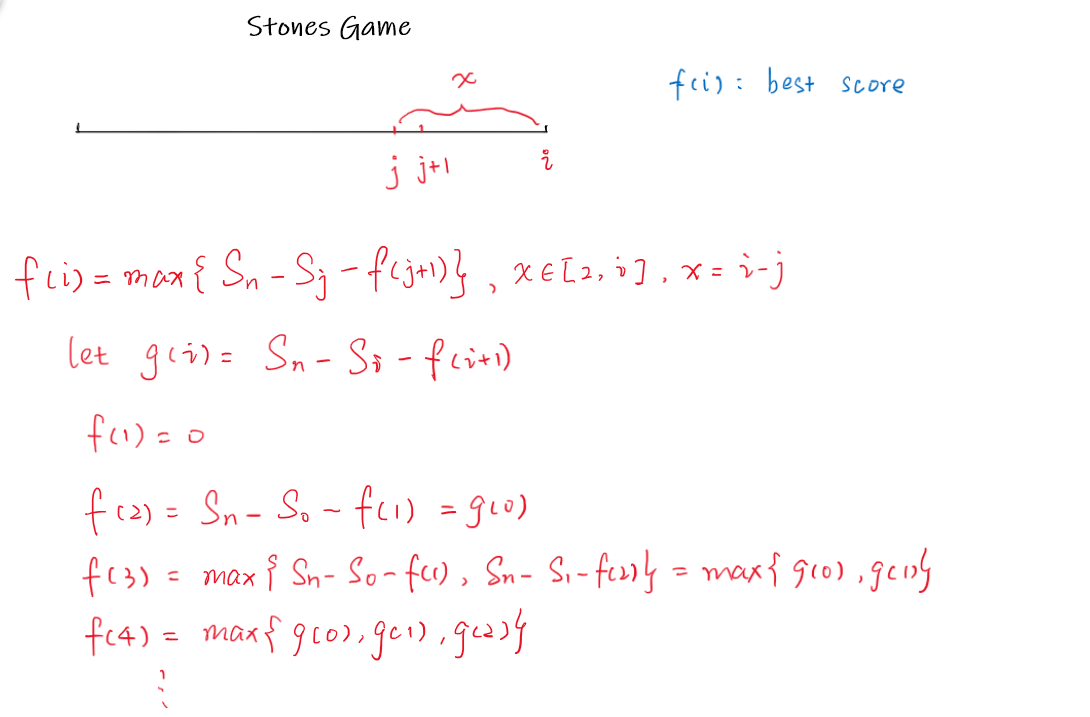 Stones Game
x
f(i): best score
j j+1 i
f(i) = max{ Sn - Sj - f(j+1)}, x∈[2, i], x = i-j
let g(i) = Sn - Si - f(i+1)
f(1) = 0
f(2) = Sn - S0 - f(1) = g(0)
f(3) = max{ Sn - S0 - f(1), Sn - S1 - f(2)} = max{ g(0), g(1)}
f(4) = max{ g(0), g(1), g(2)}
⋮